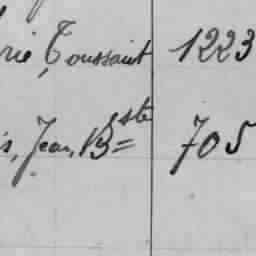 rie Toussaint 1223
s, Jean, Bste 705